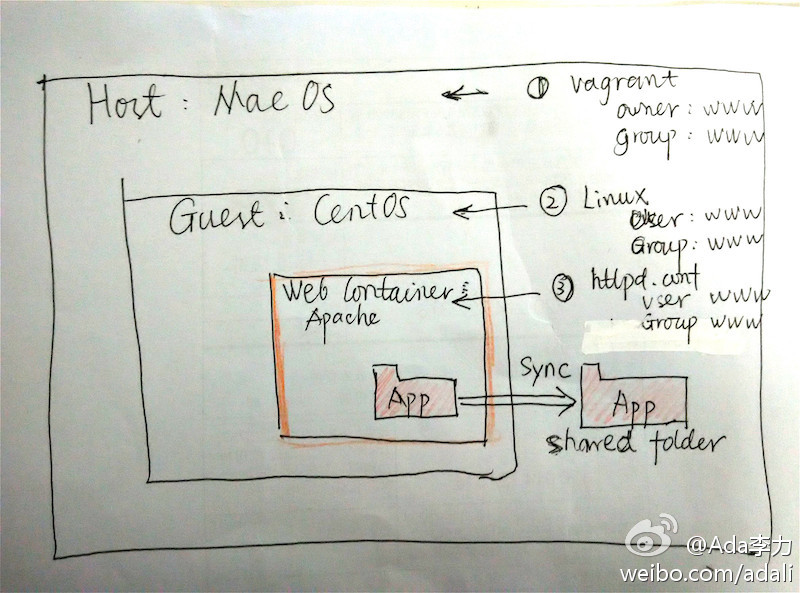 Host : Mac OS
① vagrant
owner : www
group : www
Guest : CentOS
② Linux
User : www
Group : www
Web Container :
Apache
③ httpd.conf
user www
Group www
App
Sync
App
shared folder
@Ada李力
weibo.com/adali